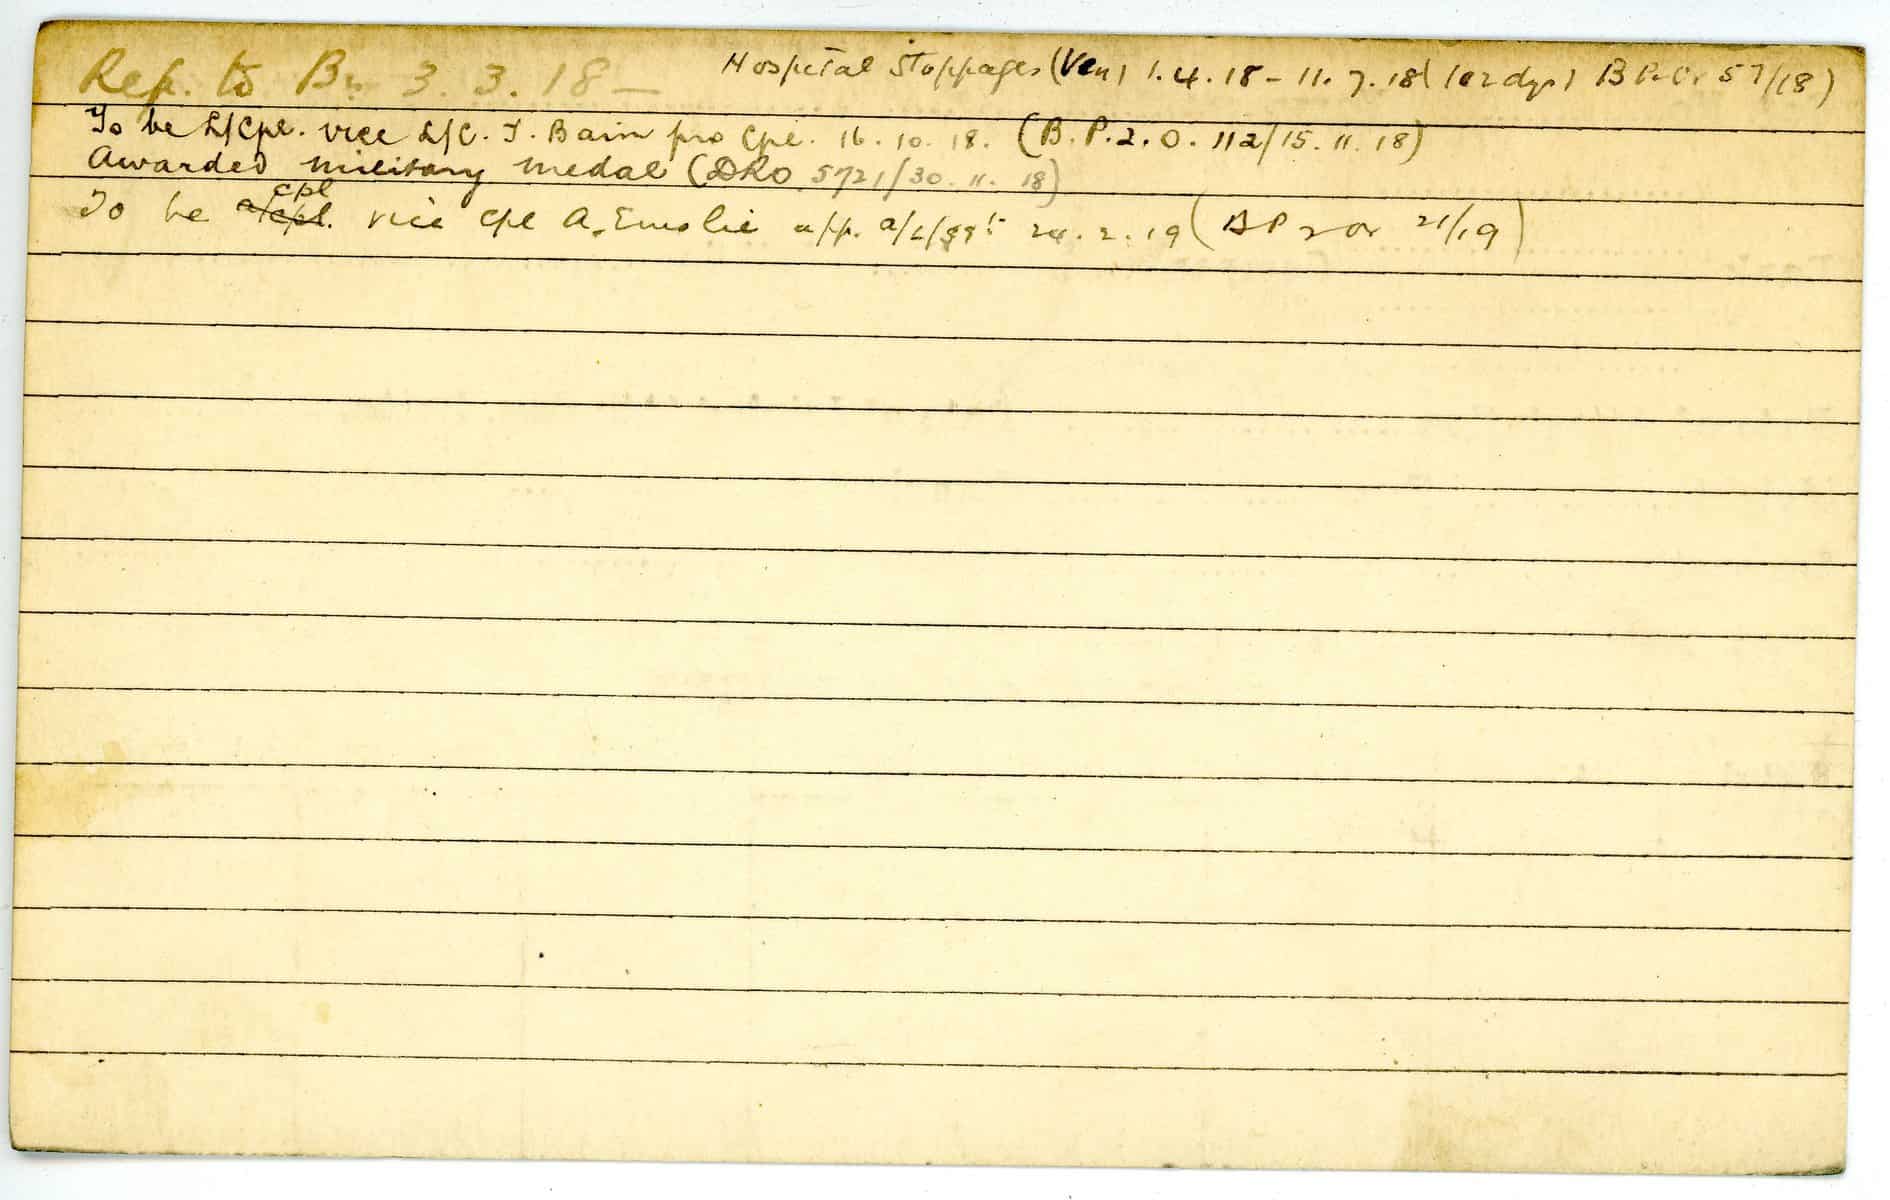 Rep. to Bn. 3. 3. 18 — Hospital Stoppages (Ven) 1.4.18 - 11.7.18 (102 dys) B P 2 Or 57/18)
To be L/Cpl. vice L/C. J. Bain pro Cpl. 16.10.18. (B.P.2.O. 112/15.11.18)
Awarded Military Medal (DRO 5721/30.11.18)
cpl
To be a/cpl. vice Cpl A. Emslie app. 24.2.19 (B P 2 Or 21/19)